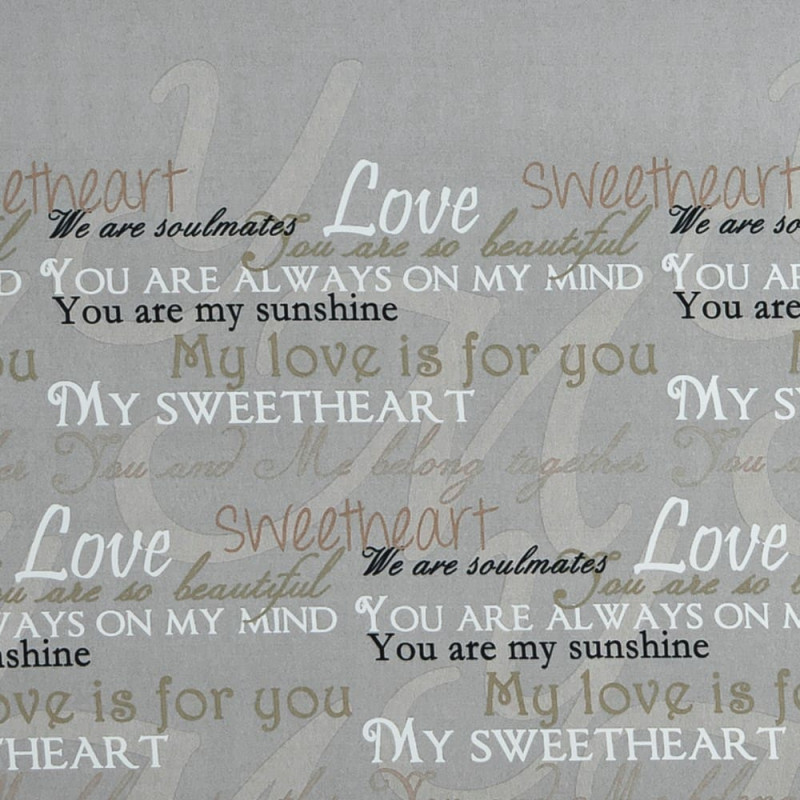 etheart Love sweetheart
We are soulmates We are so
l You are so beautiful
D YOU ARE ALWAYS ON MY MIND YOU AR
You are my sunshine You are
ou My love is for you M
MY SWEETHEART MY S
er You and Me belong together You a
Love sweetheart Love
We are soulmates
ou are so beautiful You are so b
WAYS ON MY MIND YOU ARE ALWAYS ON M
nshine You are my sunshine
ove is for you My love is fo
THEART MY SWEETHEART